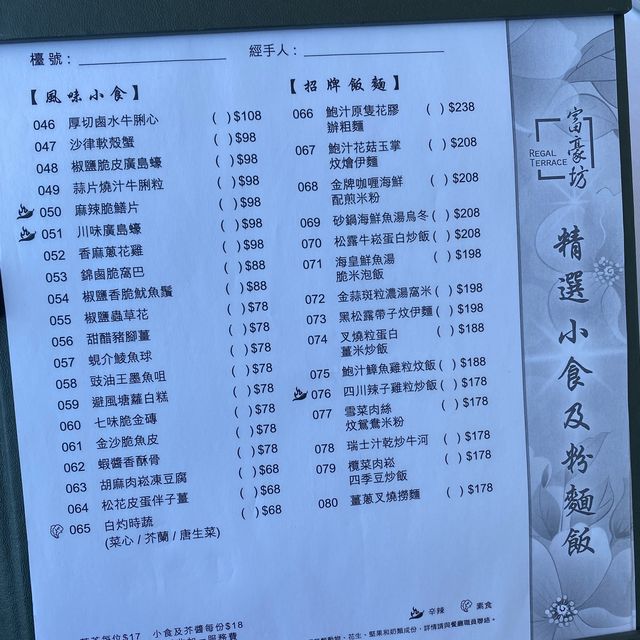 檯號:
經手人:
【風味小食】
046 厚切鹵水牛脷心 ( )$108
047 沙律軟殼蟹 ( )$98
048 椒鹽脆皮廣島蠔 ( )$98
049 蒜片燒汁牛脷粒 ( )$98
050 麻辣脆鱔片 ( )$98
051 川味廣島蠔 ( )$98
052 香麻蔥花雞 ( )$98
053 錦鹵脆窩巴 ( )$88
054 椒鹽香脆魷魚鬚 ( )$88
055 椒鹽蟲草花 ( )$78
056 甜醋豬腳薑 ( )$78
057 蜆介鯪魚球 ( )$78
058 豉油王墨魚咀 ( )$78
059 避風塘蘿白糕 ( )$78
060 七味脆金磚 ( )$78
061 金沙脆魚皮 ( )$78
062 蝦醬香酥骨 ( )$78
063 胡麻肉崧凍豆腐 ( )$68
064 松花皮蛋伴子薑 ( )$68
065 白灼時蔬 ( )$68
(菜心 / 芥蘭 / 唐生菜)
【招牌飯麵】
066 鮑汁原隻花膠 ( )$238
辦粗麵
067 鮑汁花菇玉掌 ( )$208
炆燴伊麵
068 金牌咖喱海鮮 ( )$208
配煎米粉
069 砂鍋海鮮魚湯烏冬 ( )$208
070 松露牛崧蛋白炒飯 ( )$208
071 海皇鮮魚湯 ( )$198
脆米泡飯
072 金蒜斑粒濃湯窩米 ( )$198
073 黑松露帶子炆伊麵 ( )$198
074 叉燒粒蛋白 ( )$188
薑米炒飯
075 鮑汁鱆魚雞粒炆飯 ( )$188
076 四川辣子雞粒炒飯 ( )$178
077 雪菜肉絲 ( )$178
炆鴛鴦米粉
078 瑞士汁乾炒牛河 ( )$178
079 欖菜肉崧 ( )$178
四季豆炒飯
080 薑蔥叉燒撈麵 ( )$178
辛辣 素食
每位$17 小食及芥醬每位$18
一服務費
花生、堅果和奶類成份，詳情請與餐廳職員聯絡。
REGAL
TERRACE
富豪坊
精選小食及粉麵飯